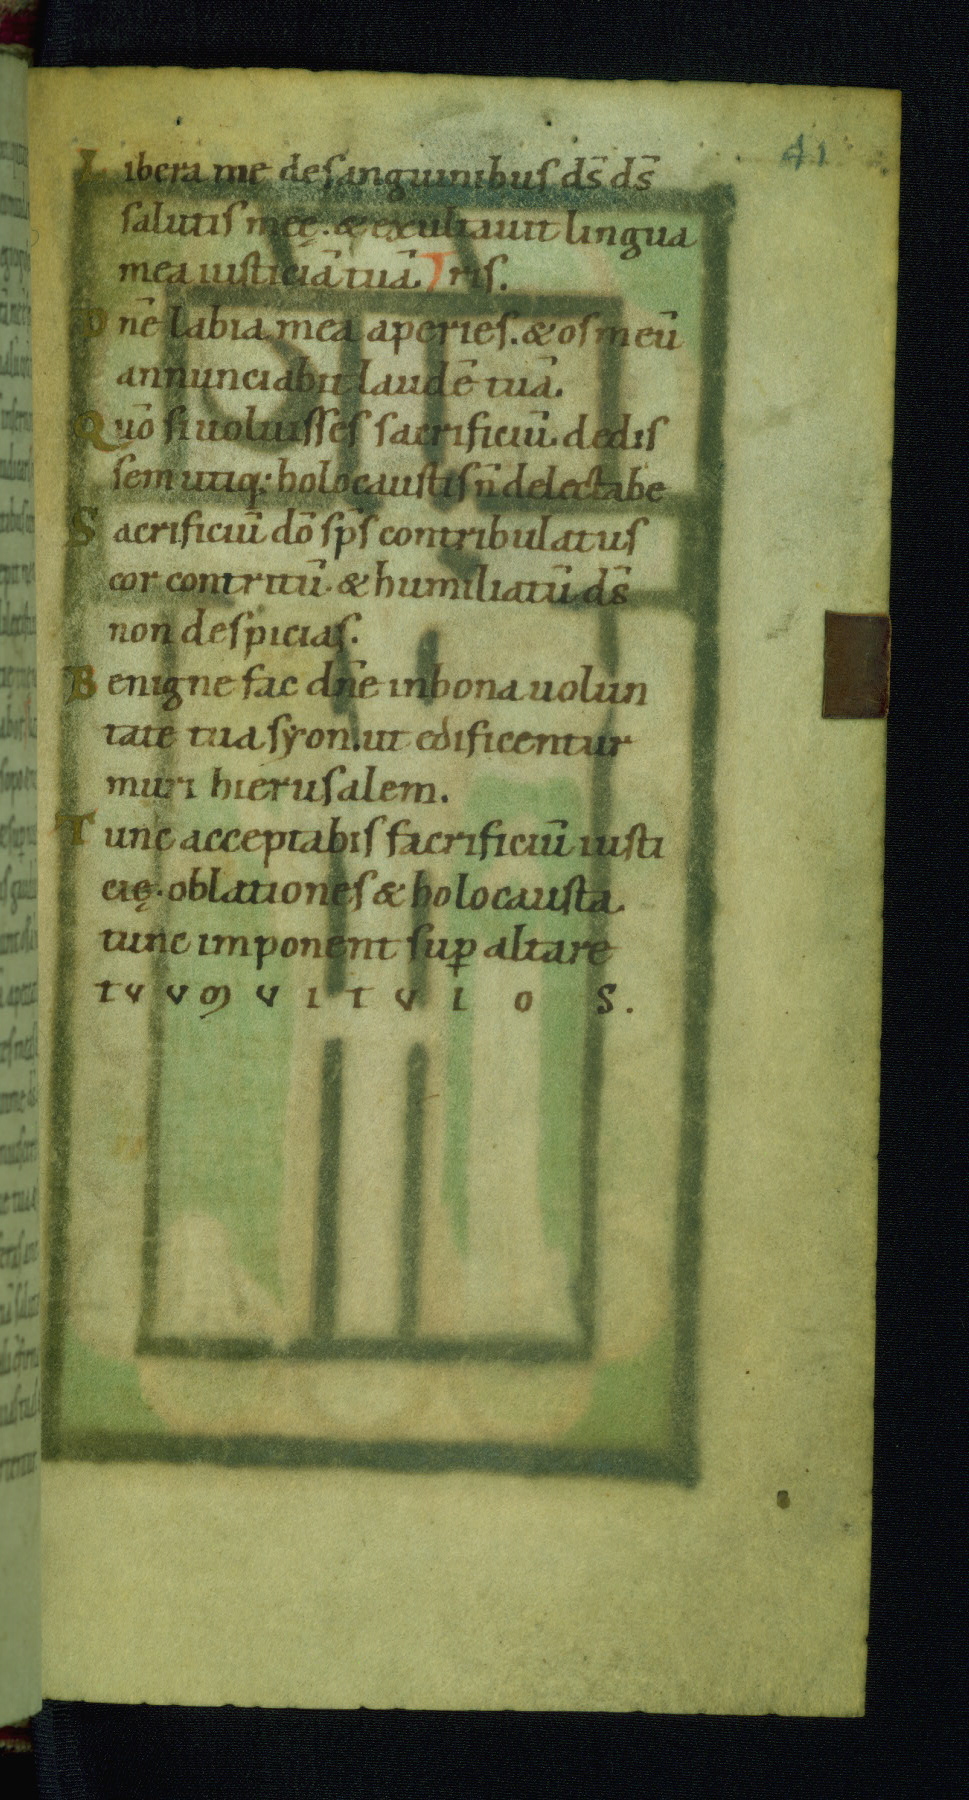 41
Libera me desanguinibus ds̄ ds̄
salutis meę. & exultauit lingua
mea iusticiā tuā. Tris.
Dn̄e labia mea aperies. & os meū
annunciabit laudē tuā.
Quō si uoluisses sacrificiū. dedis
sem utiq; holocaustis n̄ delectabe
Sacrificiū dō sp̄s contribulatus
cor contritū. & humiliatū ds̄
non despicias.
Benigne fac dn̄e inbona uolun
tate tua syon. ut edificentur
muri hierusalem.
Tunc acceptabis sacrificiū iusti
cię. oblationes & holocausta.
tunc imponent suꝑ altare
tuum uitulos.